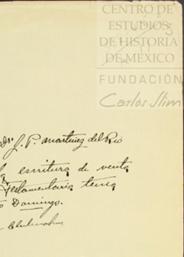 CENTRO DE
ESTUDIOS
DE HISTORIA
DE MÉXICO
FUNDACIÓN
Carlos Slim
J. P. Martinez del Rio
escritura de venta
Testamentaria
Domingo.
Chihuahua